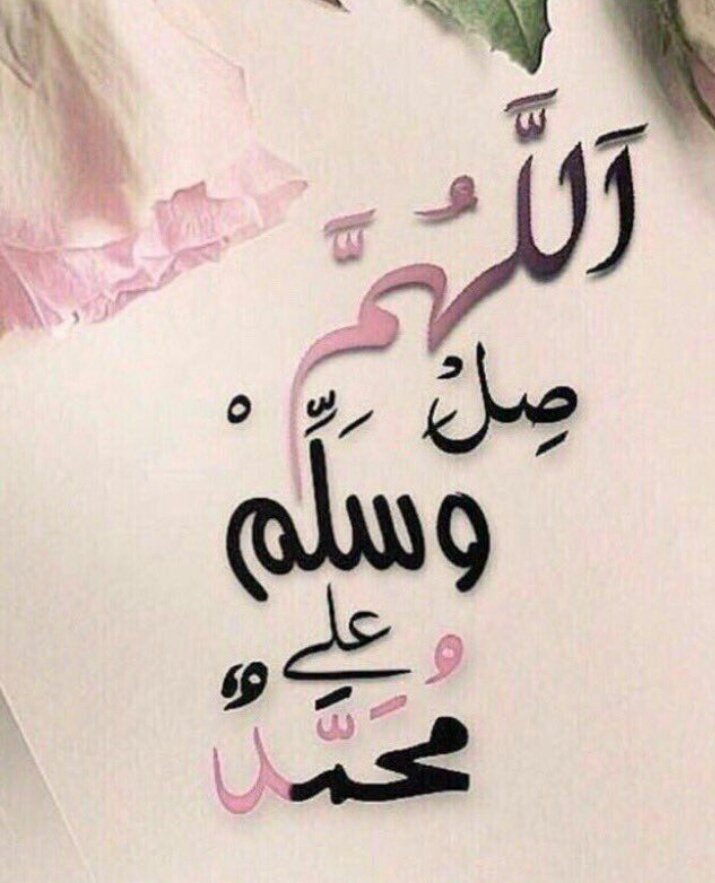 اَللَّهُمَّ
صِلْ
وَسَلِّمْ
على
مُحَمَّدٌ